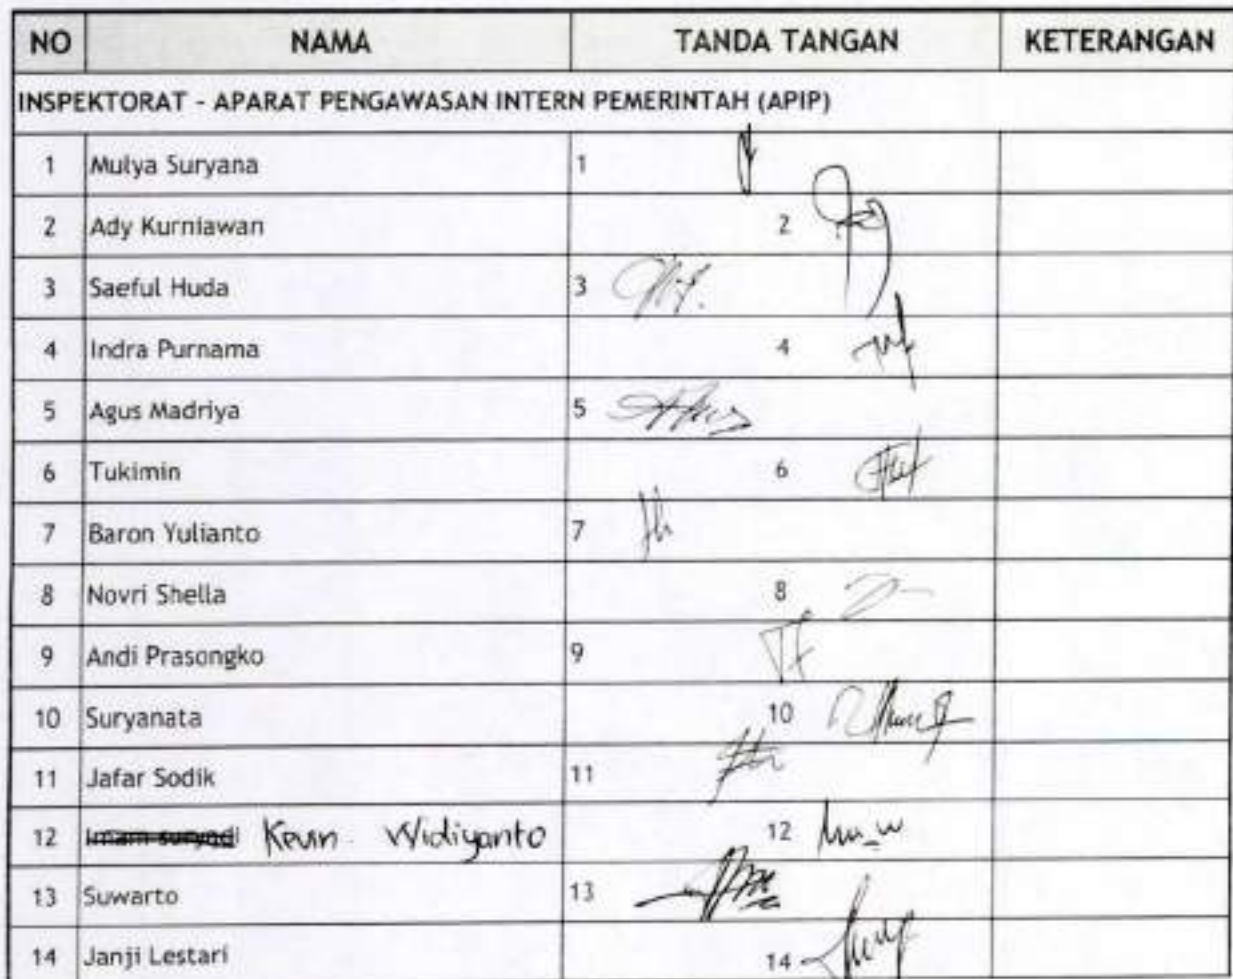 NO NAMA TANDA TANGAN KETERANGAN
INSPEKTORAT - APARAT PENGAWASAN INTERN PEMERINTAH (APIP)
1 Mulya Suryana 1
2 Ady Kurniawan 2
3 Saeful Huda 3
4 Indra Purnama 4
5 Agus Madriya 5
6 Tukimin 6
7 Baron Yulianto 7
8 Novri Shella 8
9 Andi Prasongko 9
10 Suryanata 10
11 Jafar Sodik 11
12 Imam suryadi Kevin Widiyanto 12
13 Suwarto 13
14 Janji Lestari 14